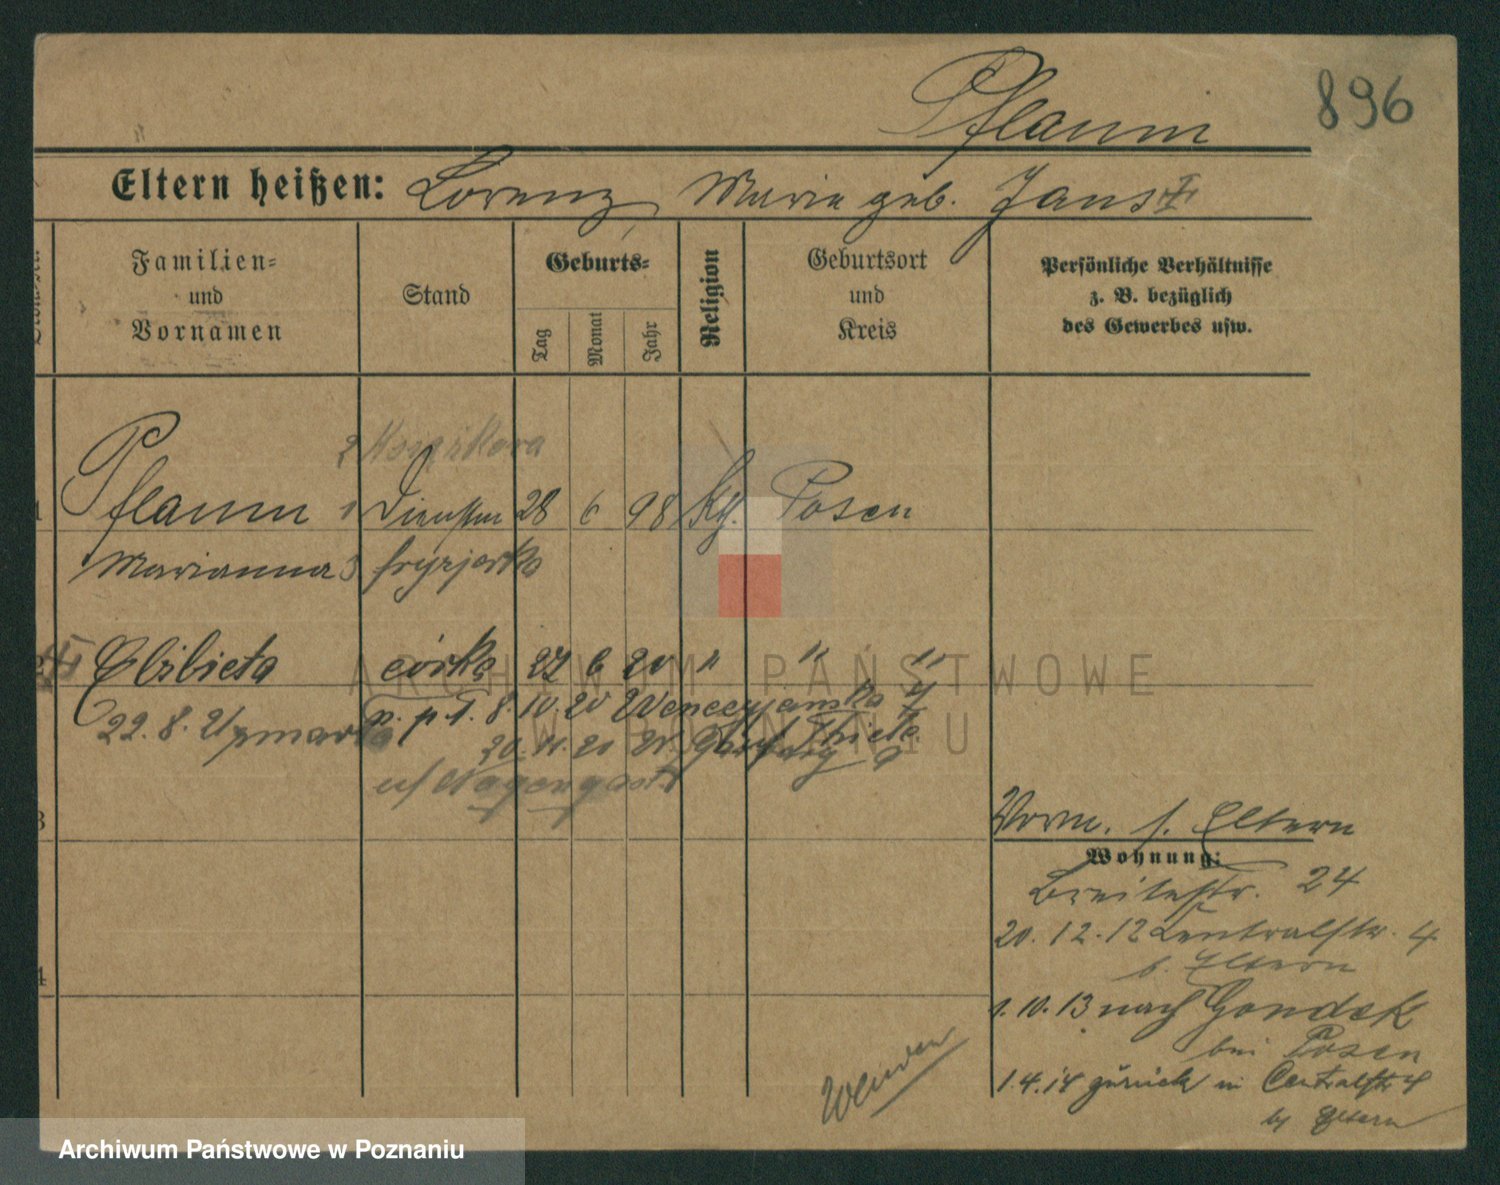 Pflaum
896
Eltern heißen: Lorenz, Marie geb. Jans
Familien=
und
Vornamen
Stand
Geburts=
Tag
Monat
Jahr
Religion
Geburtsort
und
Kreis
Persönliche Verhältnisse
z. B. bezüglich
des Gewerbes usw.
2
1 Pflaum 1 28 6 98 Kth. Posen
Marianna 3 fryzjerka
2 Elżbieta córka 27 6 20 " " "
22.8.21 zmarła p. p. T. 8.10.20 Wenecjańska 7
20.11.20 Thiela
3
Vorm. s. Eltern
Wohnung:
Breitestr. 24
20.12.12 Centralstr. 4
b. Eltern
4
1.10.13 nach Gondek
bei Posen
1.4.14 zurück in Centralstr 4
by Eltern
Wenden
ARCHIWUM PAŃSTWOWE
W POZNANIU
Archiwum Państwowe w Poznaniu